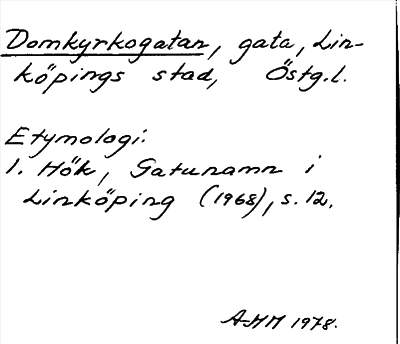 Domkyrkogatan, gata, Lin-
köpings stad, Östg.l.
Etymologi:
I. Hök, Gatunamn i
Linköping (1968), s. 12.
AMM 1978.